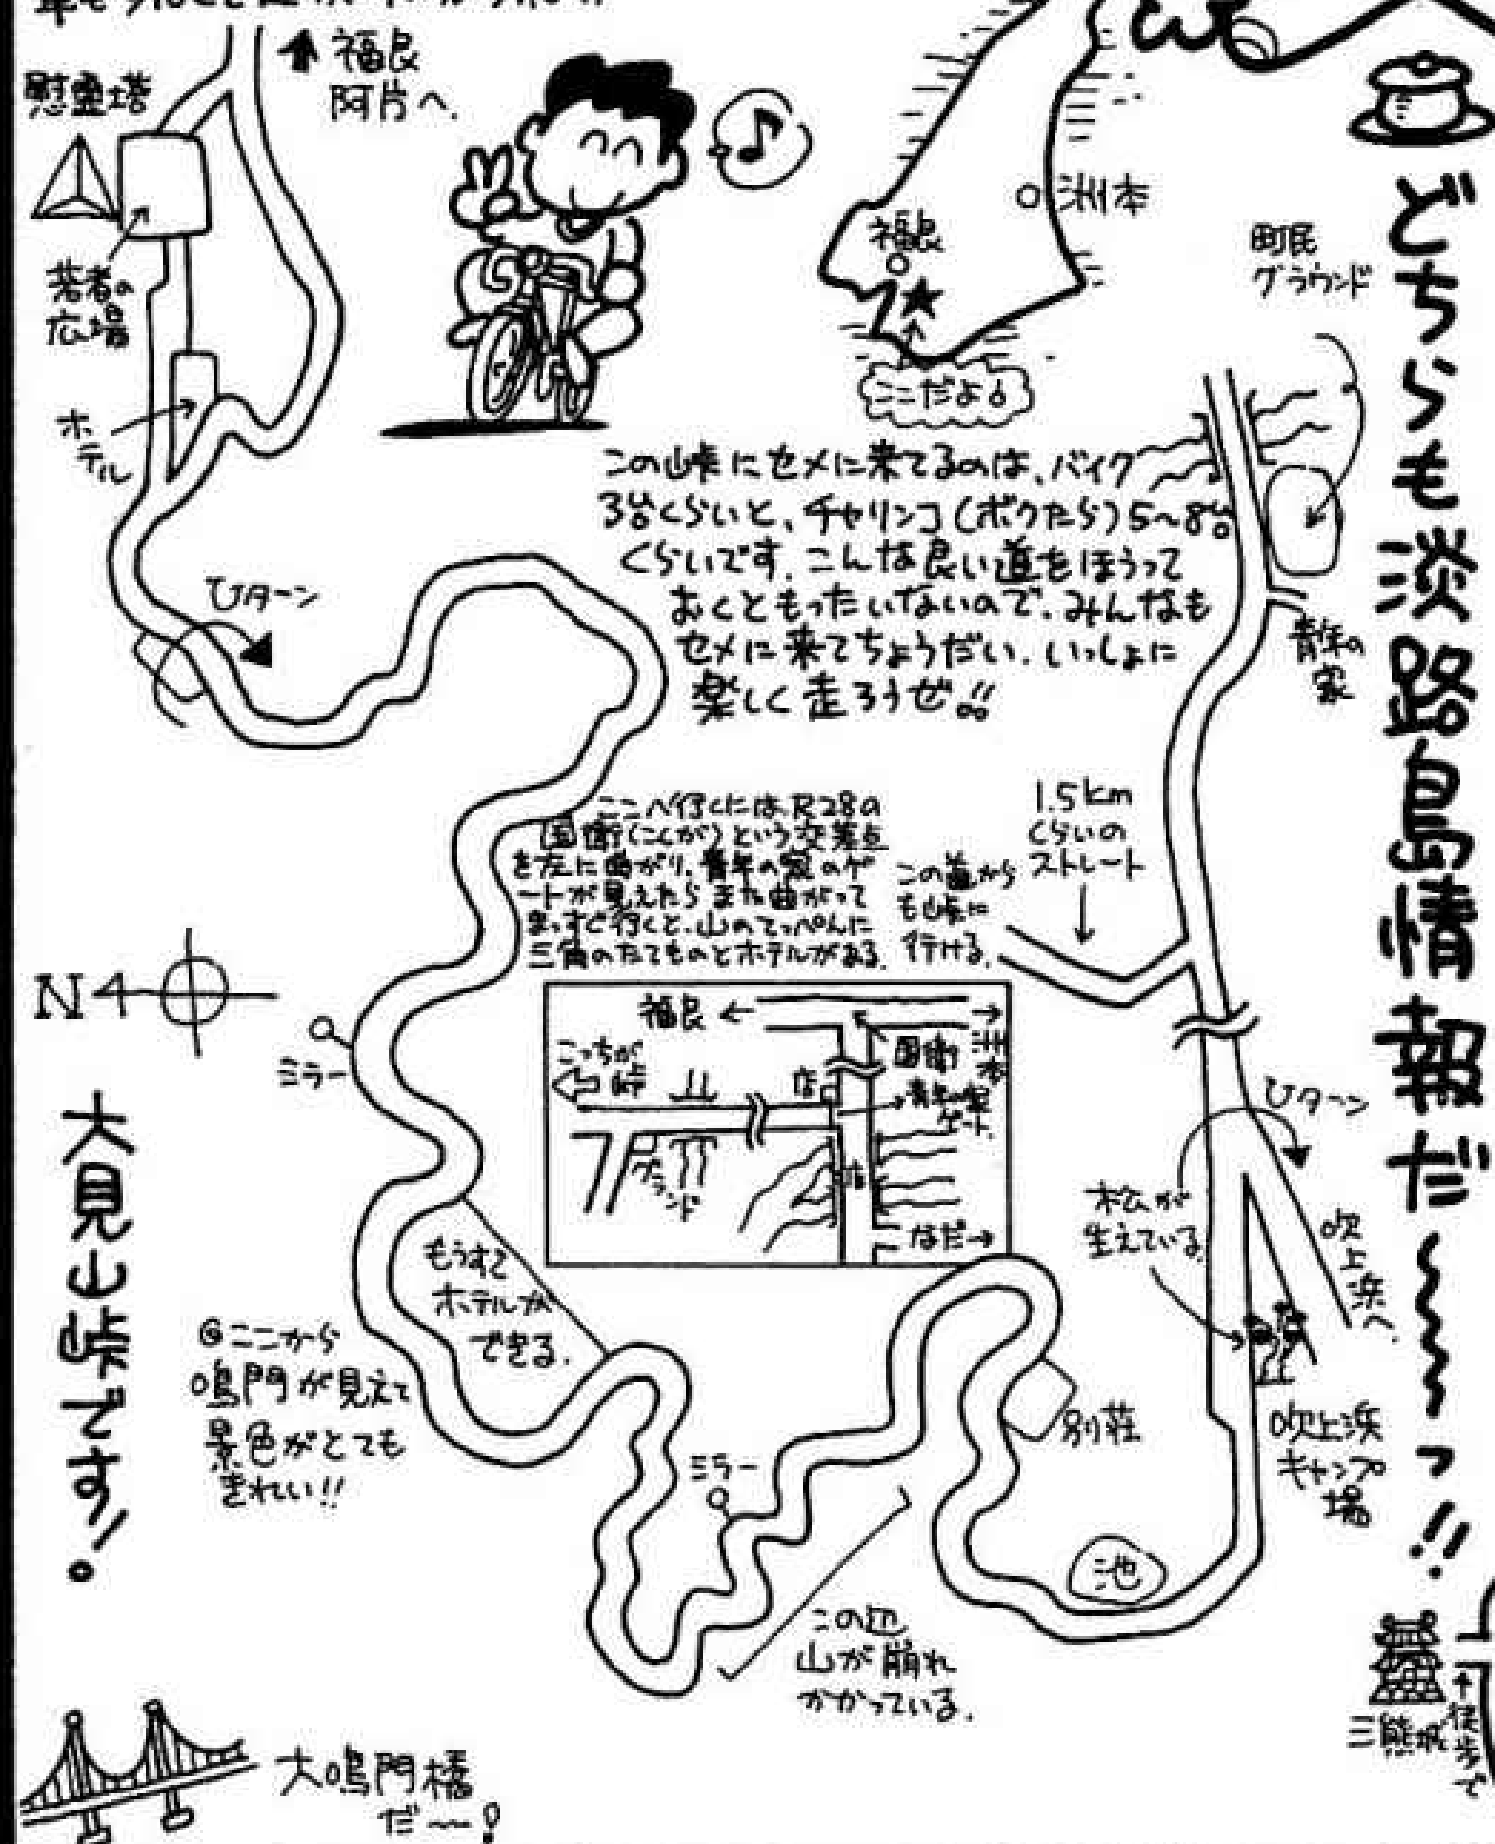 どちらも淡路島情報だ〜〜〜っ!!
↑福良
阿片へ.
慰霊塔
若者の
広場
ホ
テル
Uターン
洲本
福良
ここだよ
町民
グラウンド
この峠にセメに来てるのは、バイク
3台くらいと、チャリンコ(ボクたち)5〜8台
くらいです。こんな良い道をほうって
おくともったいないので、みんなも
セメに来てちょうだい。いっしょに
楽しく走ろうぜ!!
青年の
家
ここへ行くには、R28の
国衙(こくが)という交差点
を左に曲がり、青年の家のゲ
ートが見えたらまた曲がって
まっすぐ行くと、山のてっぺんに
三角のたてものとホテルがある.
この道から
も峠に
行ける.
1.5km
くらいの
ストレート
N
ミラー
福良←
→洲本
国衙
こっちが
峠
山
店
青年の家
ゲート.
グランド
店
なだ→
Uターン
松が
生えている.
吹上浜へ.
吹上浜
キャンプ
場
もうすぐ
ホテルが
できる.
◎ここから
鳴門が見えて
景色がとても
きれい!!
ミラー
別荘
池
この辺
山が崩れ
かかっている.
大見山峠です!
大鳴門橋
だ〜!
三熊城
徒歩で